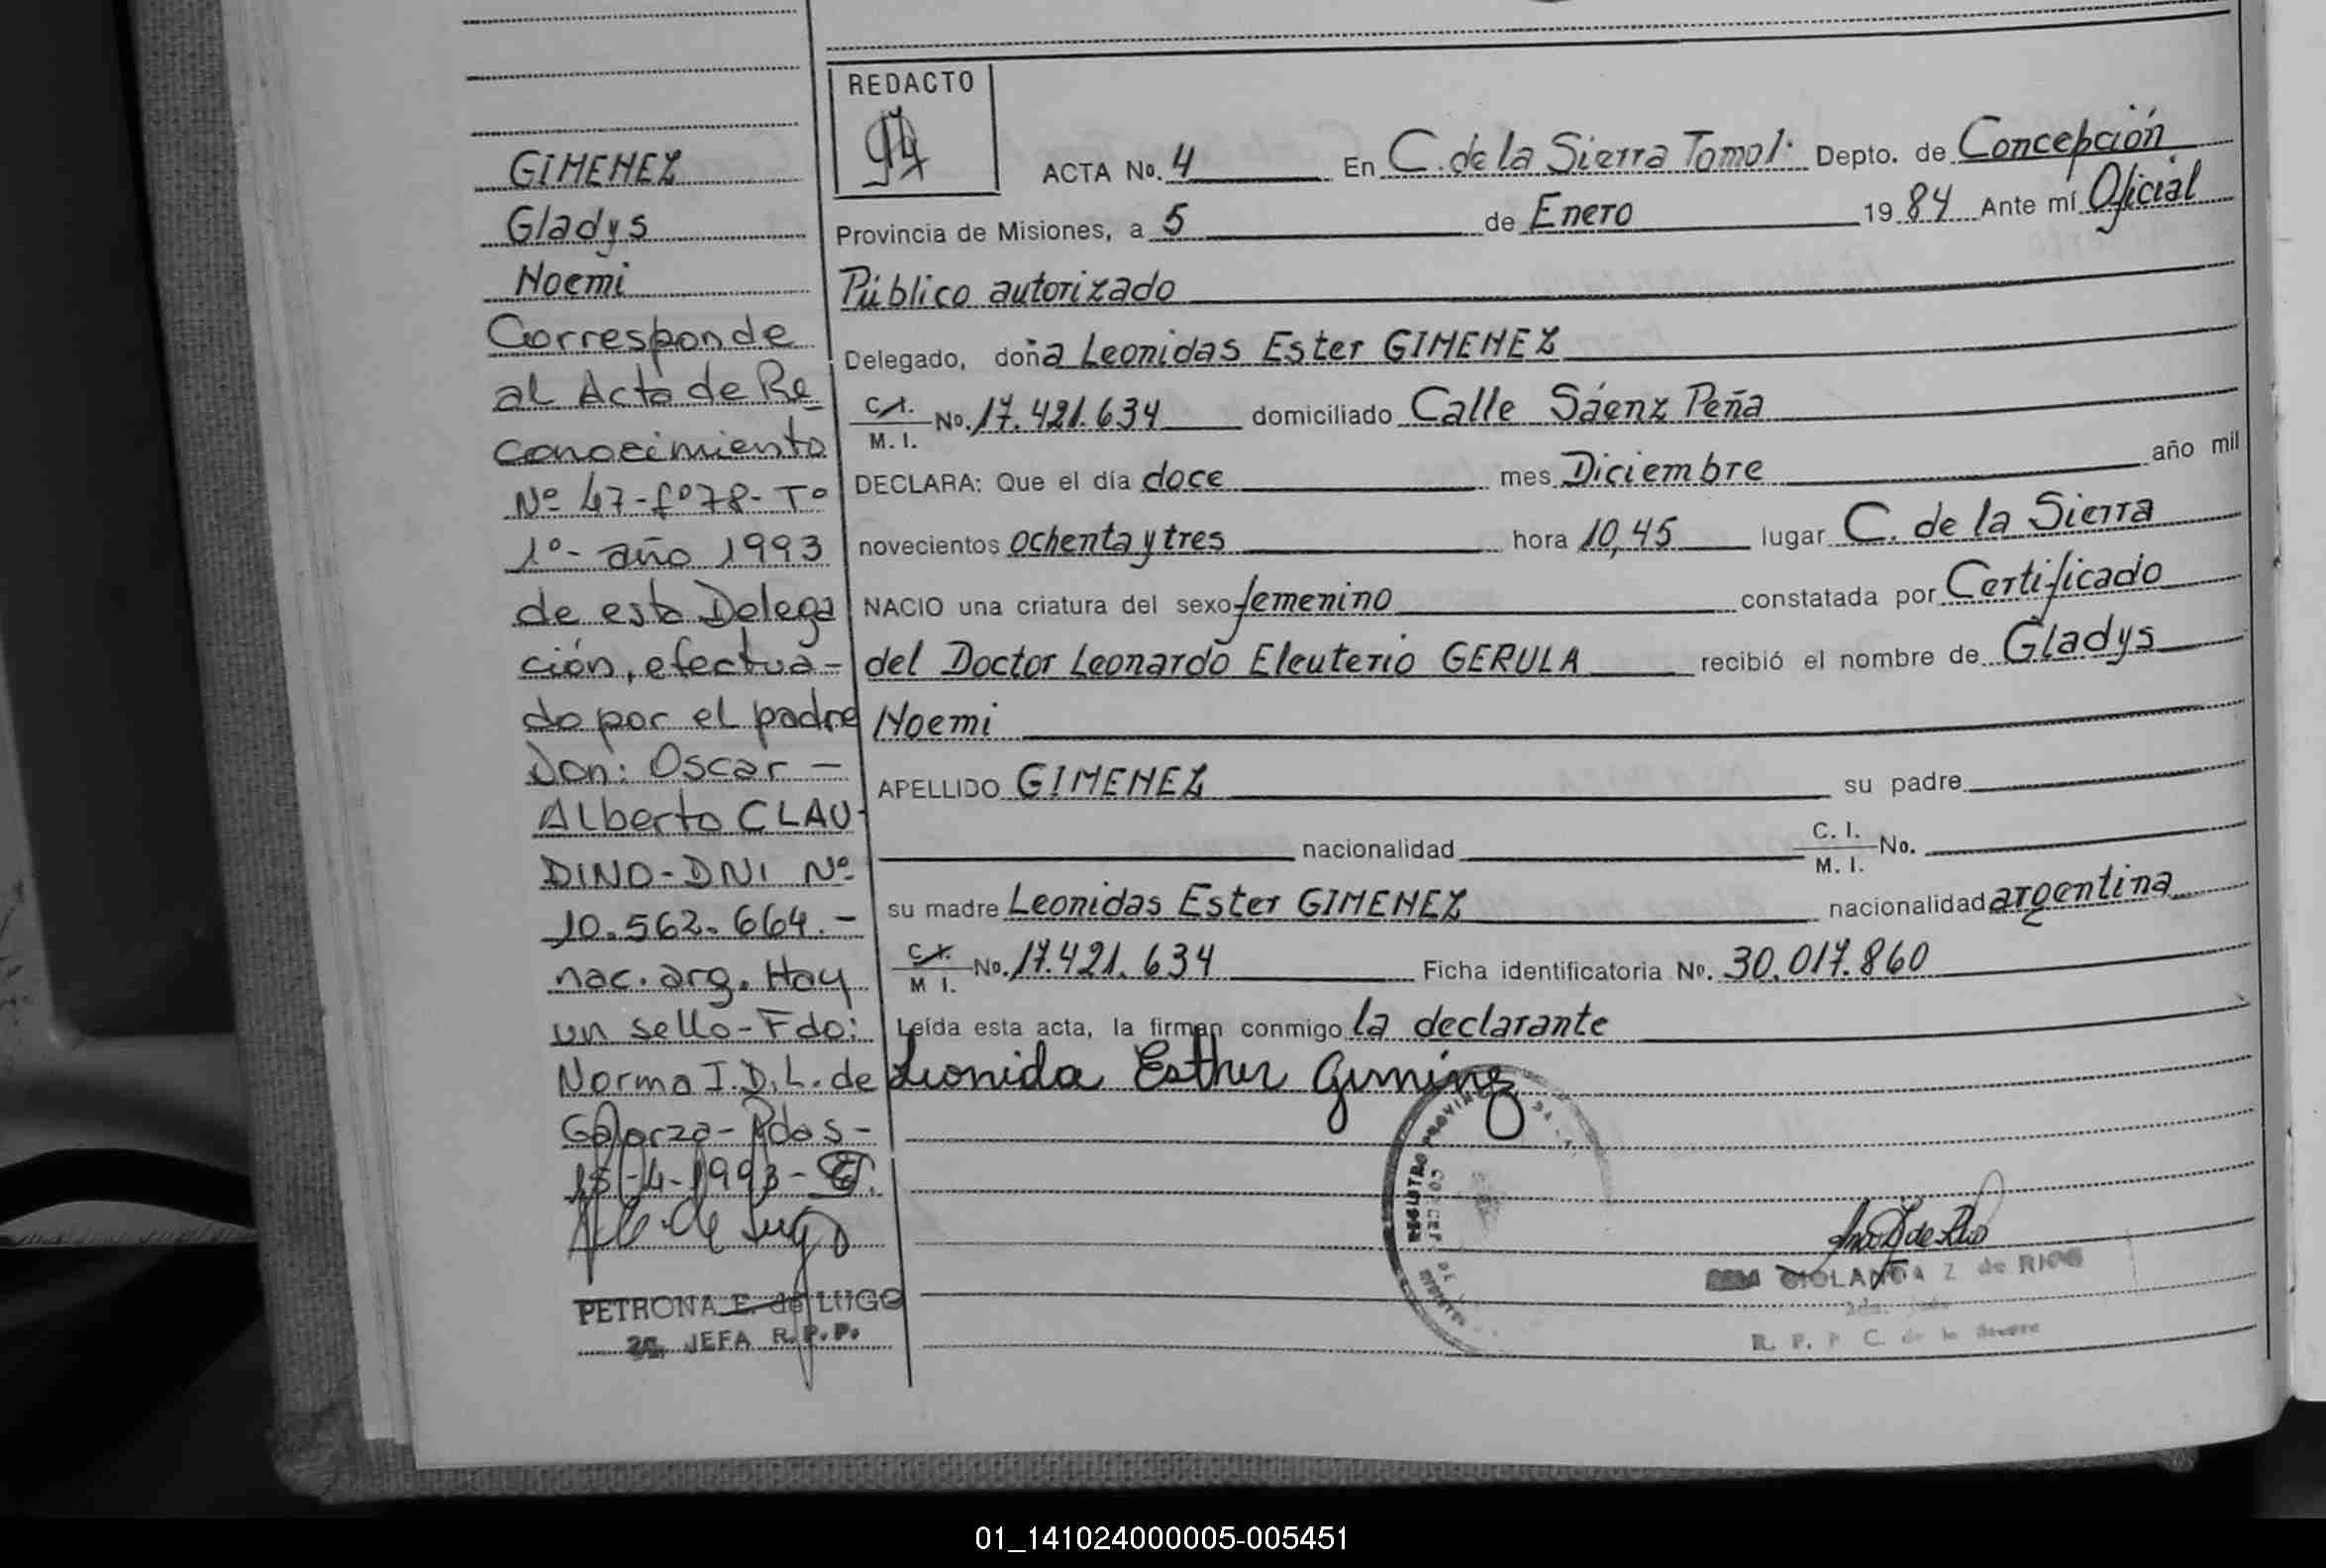 GIMENEZ
Gladys
Noemi
Corresponde
al Acta de Re
conocimiento
Nº 47-fº78-Tº
1º- año 1993
de esta Delega
ción, efectua-
do por el padre
Don: Oscar -
Alberto CLAU-
DINO-DNI Nº
10.562.664.-
nac. arg. Hay
un sello-Fdo:
Norma I.D.L. de
Galarza-Pdas-
15-4-1993-
PETRONA E. de LUGO
JEFA R.P.P.
REDACTO
ACTA No. 4 En C. de la Sierra Tomo 1: Depto. de Concepción
Provincia de Misiones, a 5 de Enero 1984 Ante mí Oficial
Público autorizado
Delegado, doña Leonidas Ester GIMENEZ
C.I. M. I. No. 17.421.634 domiciliado Calle Sáenz Peña
DECLARA: Que el día doce mes Diciembre año mil
novecientos ochenta y tres hora 10,45 lugar C. de la Sierra
NACIO una criatura del sexo femenino constatada por Certificado
del Doctor Leonardo Eleuterio GERULA recibió el nombre de Gladys
Noemi
APELLIDO GIMENEZ su padre
nacionalidad C. I. M. I. No.
su madre Leonidas Ester GIMENEZ nacionalidad argentina
C.I. M I. No. 17.421.634 Ficha identificatoria No. 30.017.860
Leída esta acta, la firman conmigo la declarante
Leonida Esther Gimenez
REGISTRO PROVINCIAL
Z de RIOS
R. P. P. C. de la
01_141024000005-005451